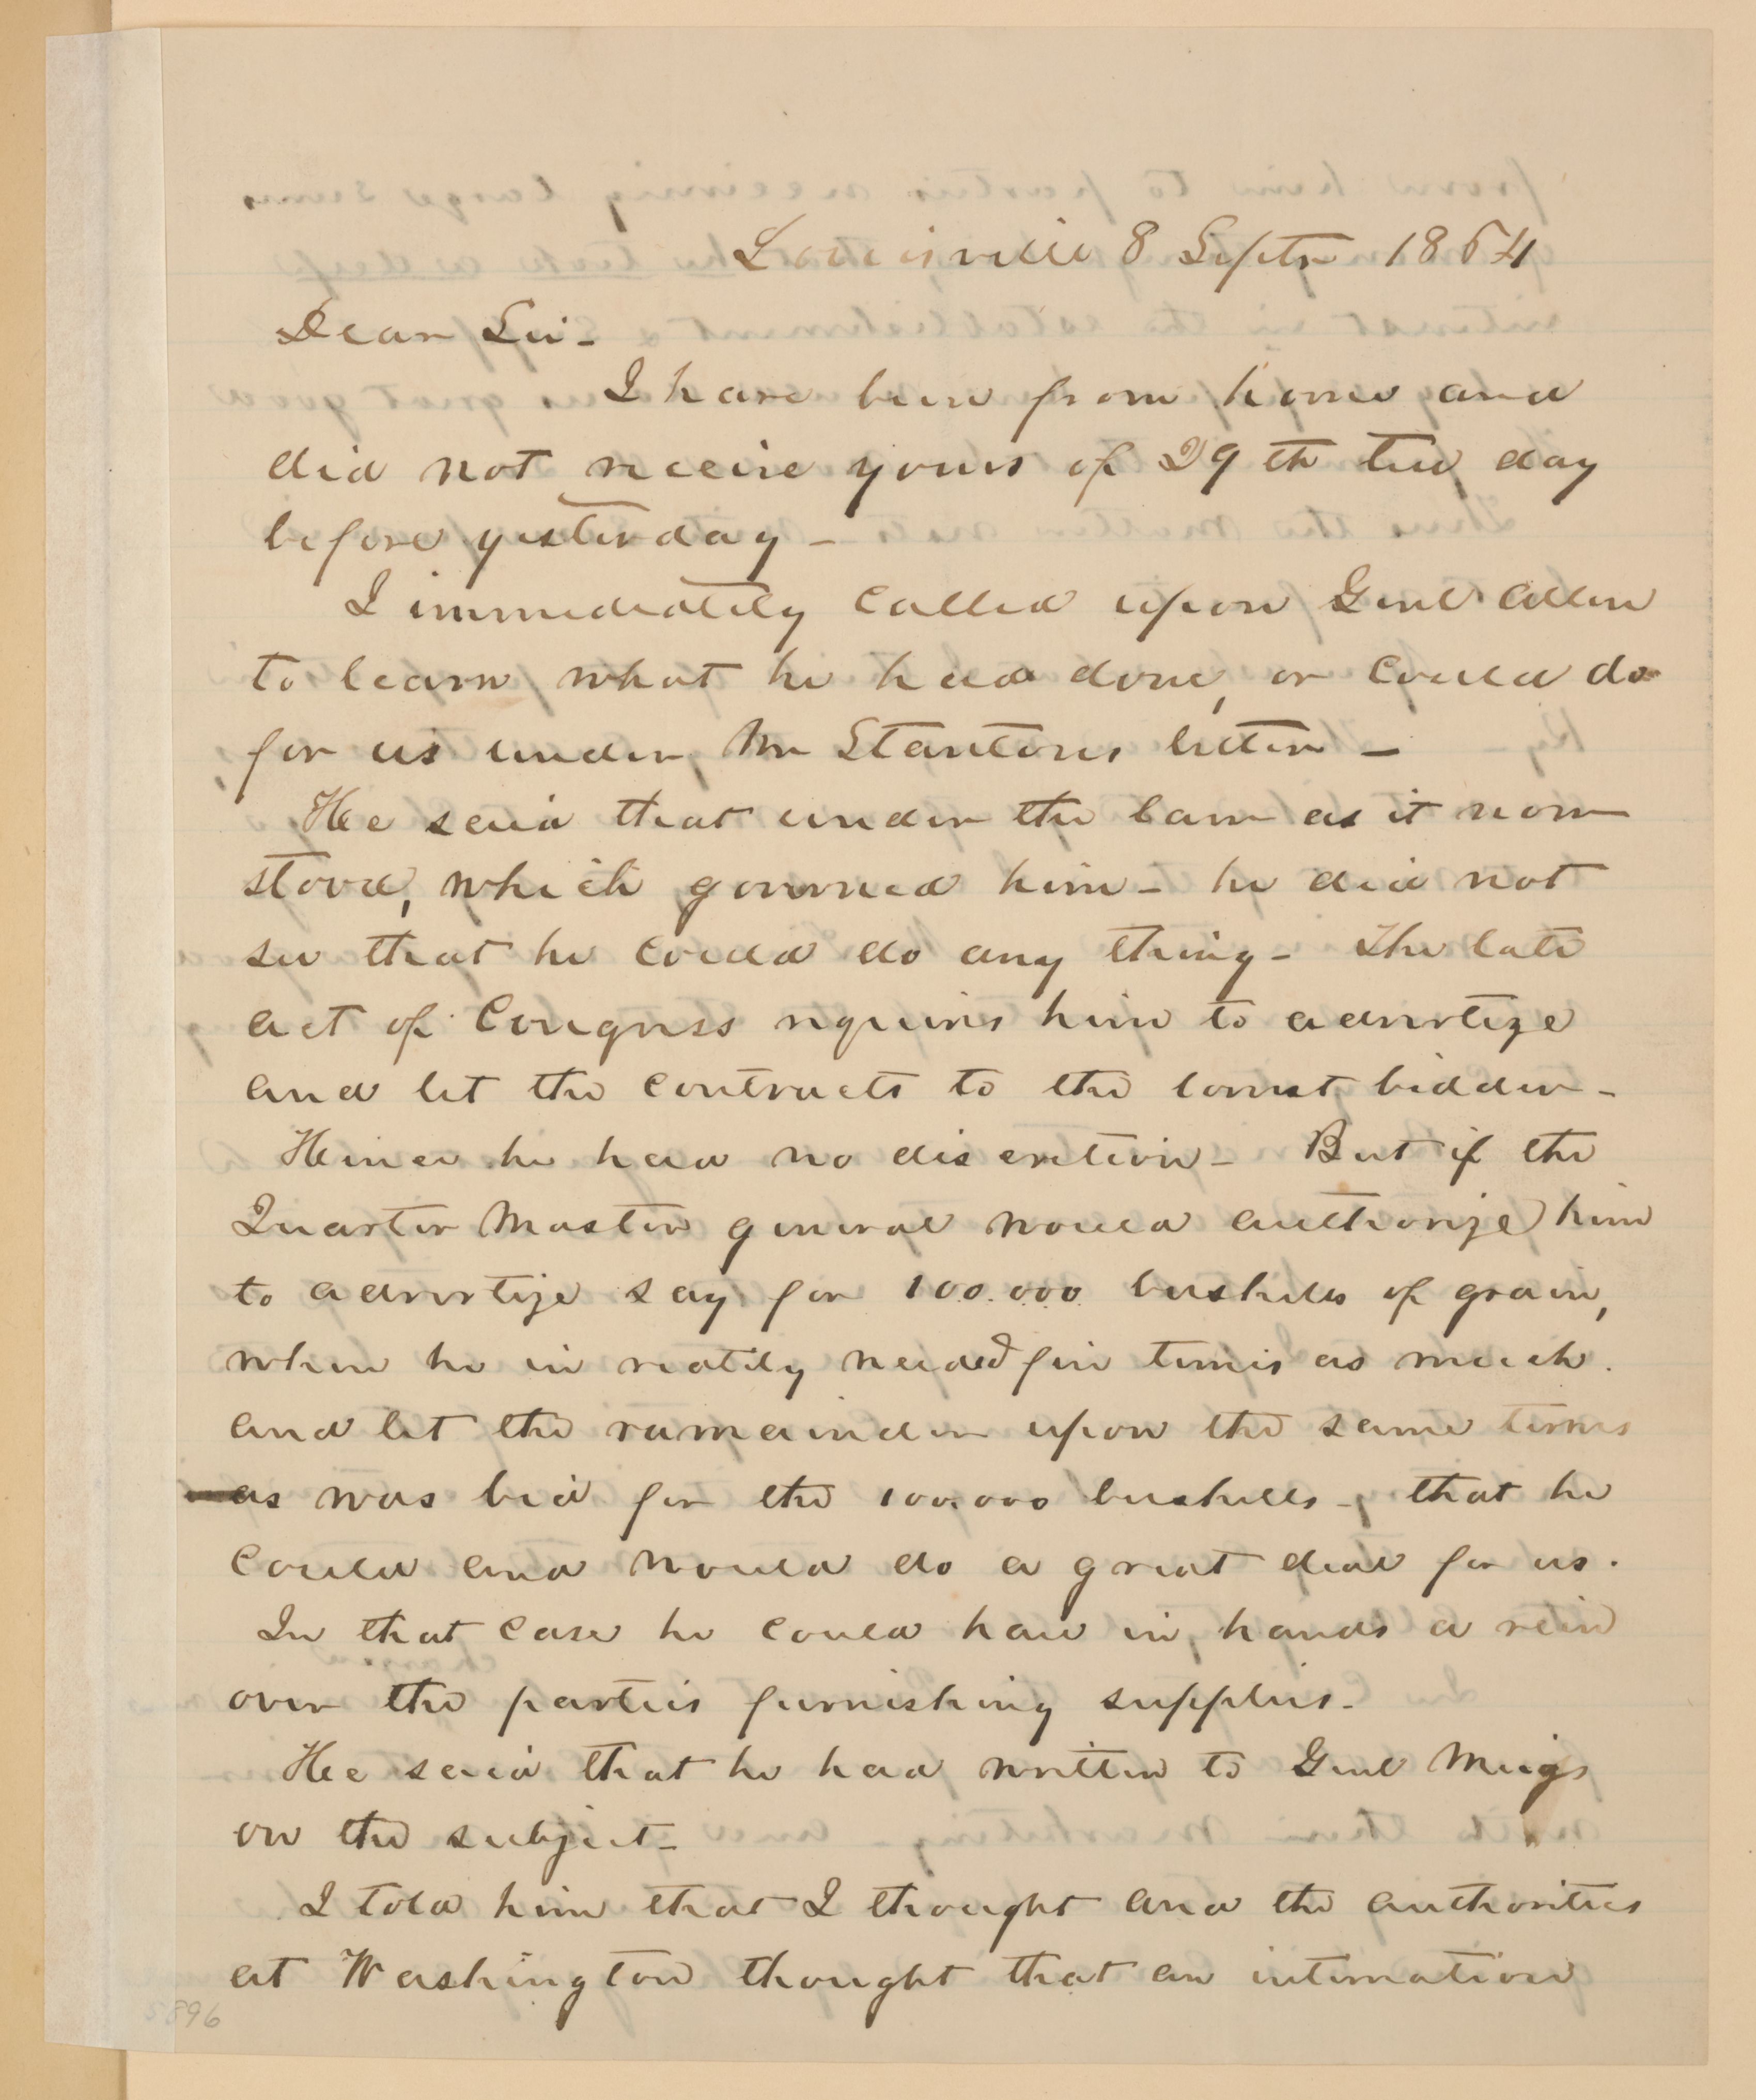 Louisville 8 Septr 1864
Dear Sir-
I have been from home and
did not receive yours of 29th till day
before yesterday-
I immediately called upon Genl Allen
to learn what he had done, or could do
for us under Mr Stantons letter-
He said that under the law as it now
stood, which governed him- he did not
see that he could do any thing- The late
act of Congress requires him to advertize
and let the contracts to the lowest bidder-
Hence he had no discretion- But if the
Quarter Master general would authorize him
to advertize say for 100.000 bushells of grain,
when he in reality needed five times as much.
and let the ramainder upon the same terms
as was bid for the 100.000 bushells-, that he
could and would do a great deal for us.
In that case he could have in hands a rein
over the parties furnishing supplies-
He said that he had written to Genl Meigs
on the subject-
I told him that I thought and the authorities
at Washington thought that an intimation
5896